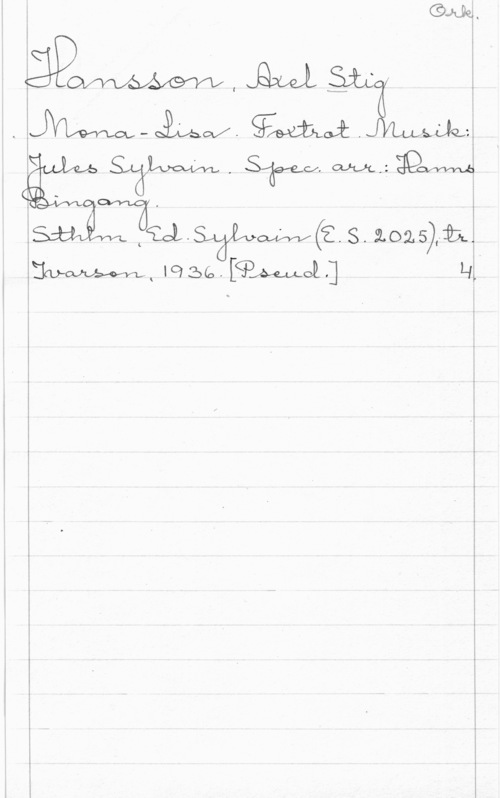 Ork.
Hansson, Axel Stig
Mona-Lisa. Foxtrot. Musik:
Jules Sylvain. Spec. arr.: Hanns
Bingang.
Sthlm, Ed. Sylvain (E. S. 2025), tr.
Ivarson, 1936. [Pseud.] 4.